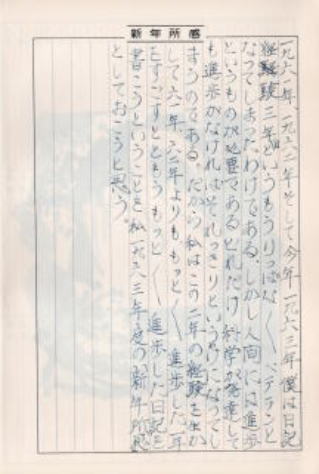 新年所感
一九六一年、一九六二年そして今年一九六三年僕は日記
経験三年というもうりっぱな〱ベテランと
なってしまったわけである。しかし人間には進歩
というものが必要であるどれだけ科学が発達して
も進歩がなければそれっきりというわけになってし
まうのである。だから私はこの二年の経験を生か
して六一年、六二年よりももっと〱進歩した一年
をすごすとともにもっと〱進歩した日記を
書こうということを私一九六三年度の新年所感
としておこうと思う。